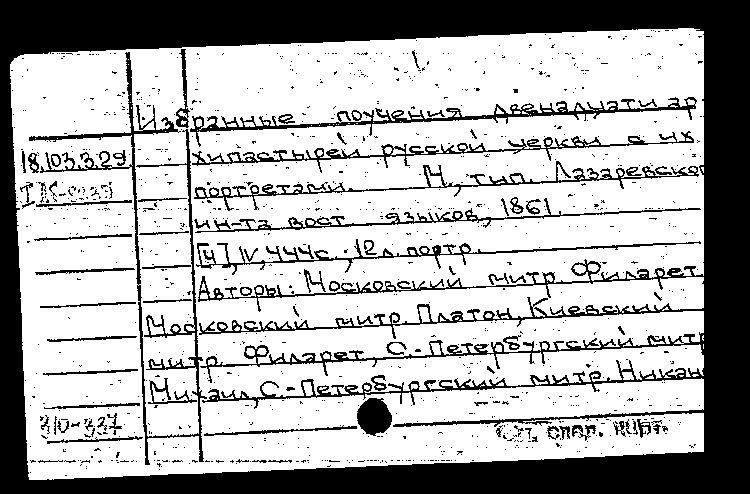 Избранные поучения двенадцати ар
18.103.3.29
хипастырей русской церкви с их
портретами. М., тип. Лазаревского
ин-та вост. языков, 1861.
[4], IV, 444 с.; 12 л. портр.
Авторы: Московский митр. Филарет,
Московский митр. Платон, Киевский
митр. Филарет, С.-Петербургский митр
Михаил, С.-Петербургский митр. Никан
310-337